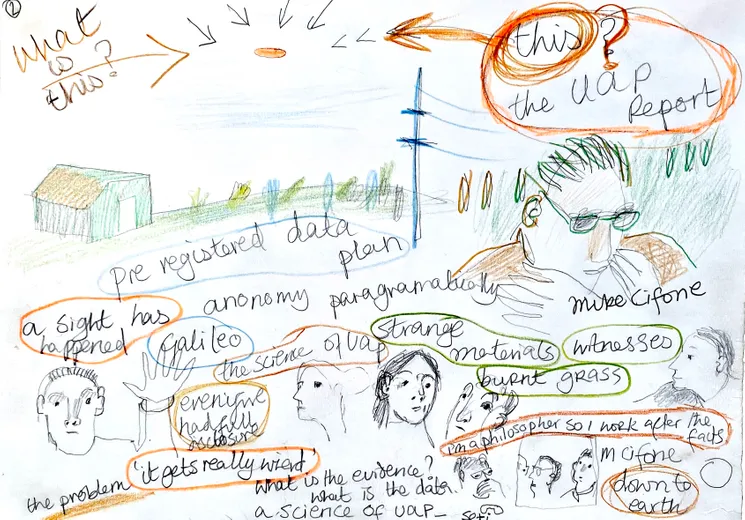 2
what
is ?
this?
this?
the UAP
Report
pre registered data
plan
anonomy paragramatically
Mike Cifone
a sight has
happened
Galileo
the science of UAP
strange
materials
witnesses
burnt grass
even if we
had full
disclosure
i'm a philosopher so I work after the
facts
M Cifone
down to
earth
'it gets really wierd'
What is the evidence?
what is the data.
a science of UAP_
the problem
seti